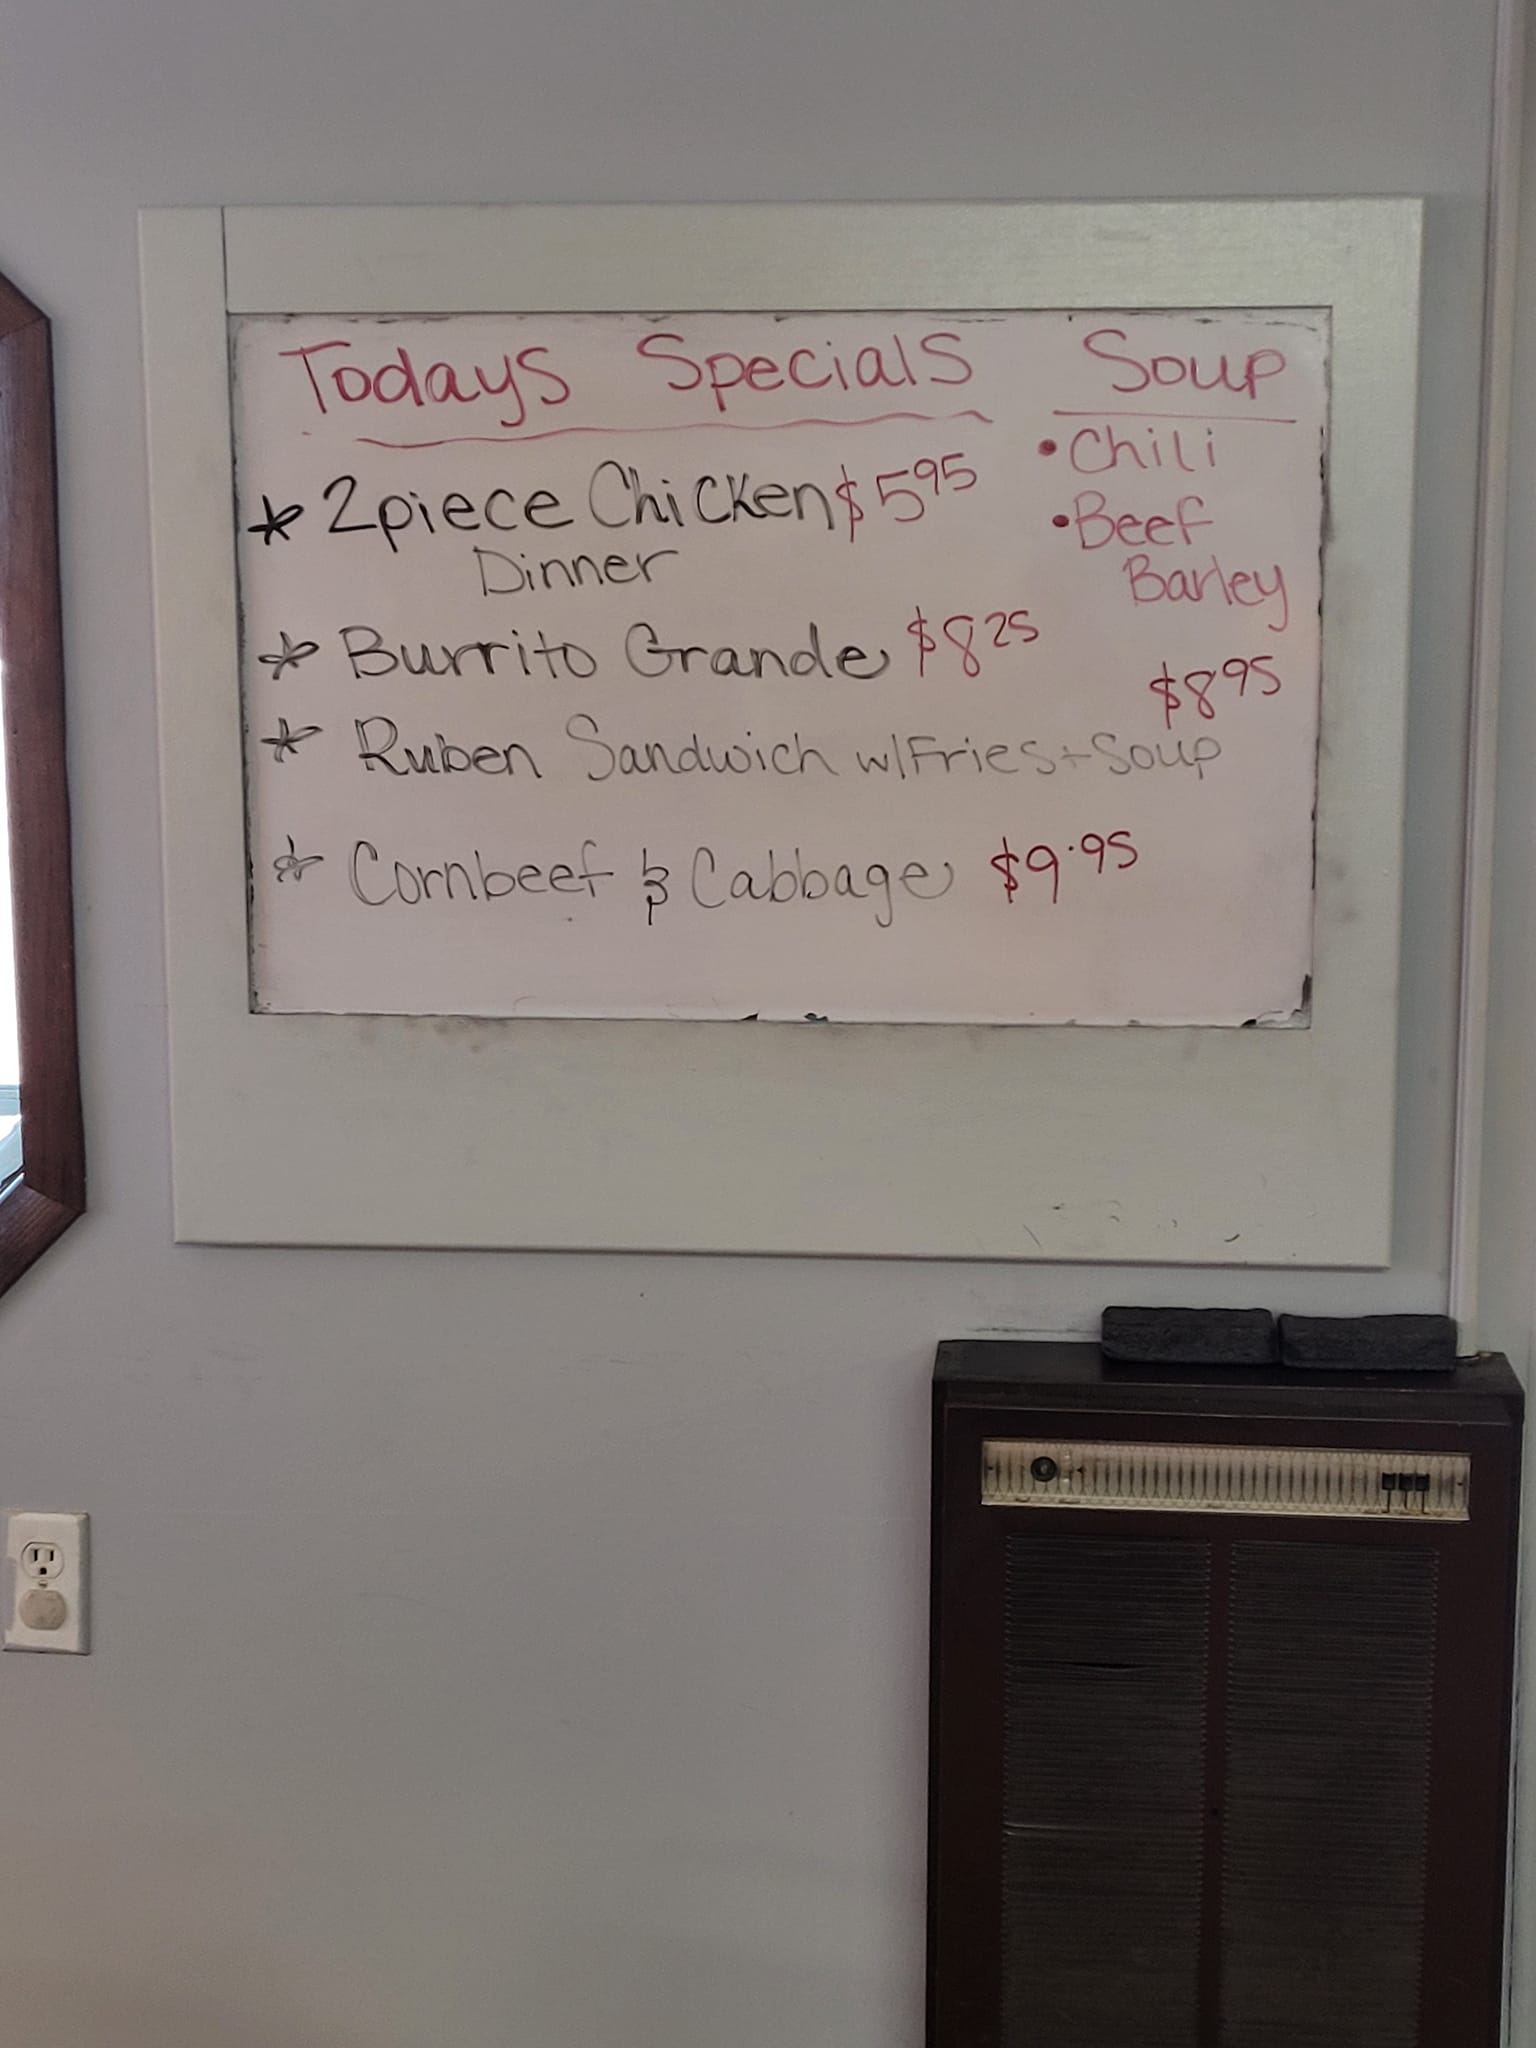 Todays Specials
* 2piece Chicken $5 95
Dinner
* Burrito Grande $8 25
* Ruben Sandwich w/Fries + Soup
$8 95
* Cornbeef & Cabbage $9.95
Soup
• Chili
• Beef
Barley